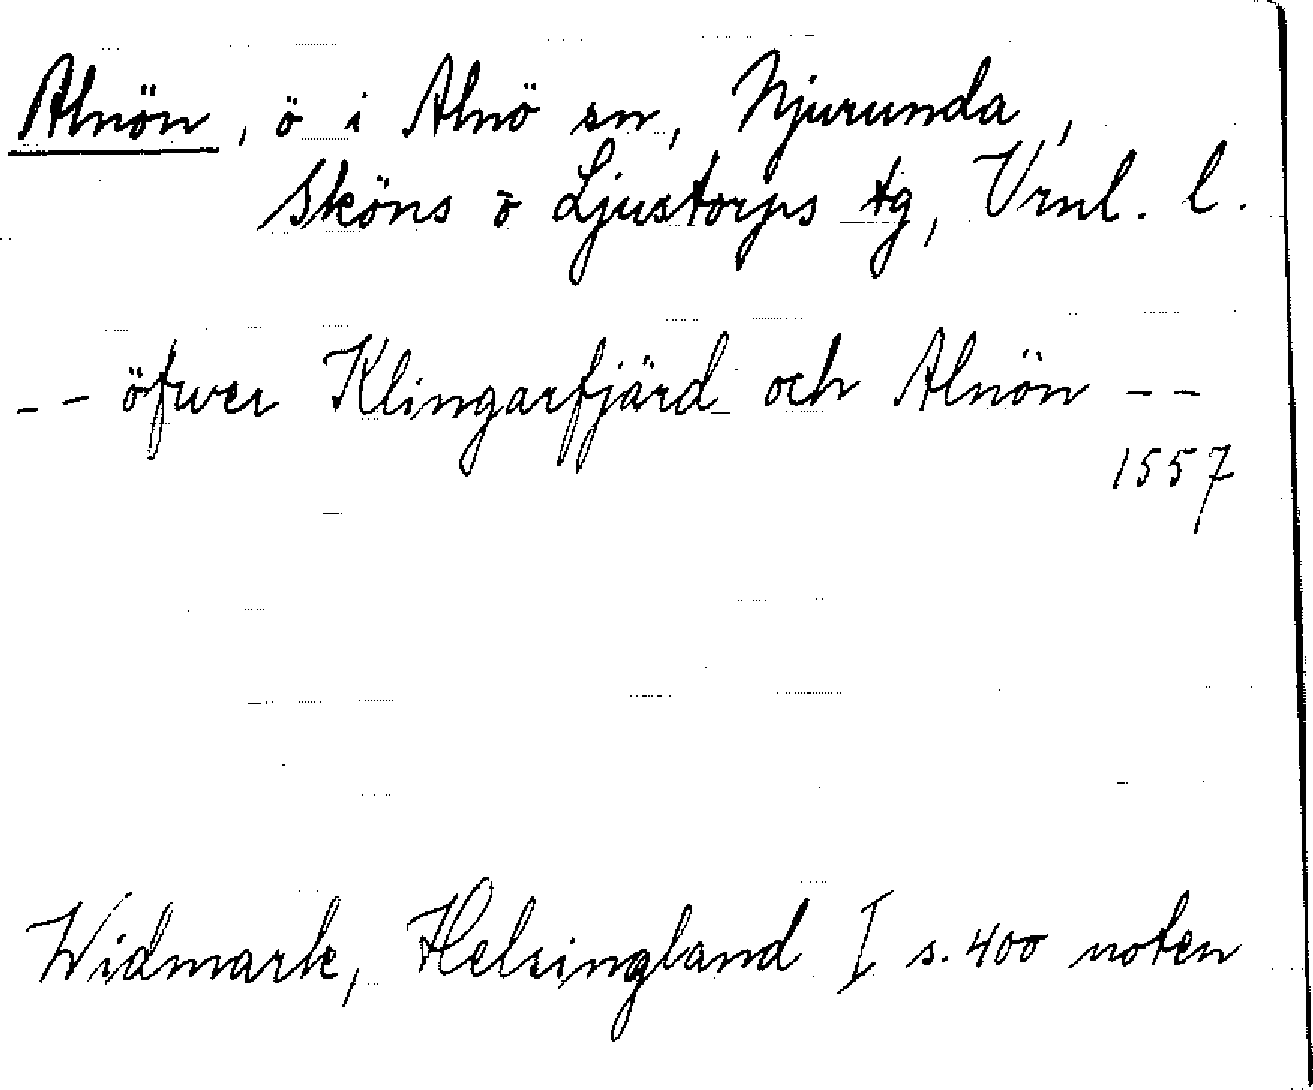 Alnön, ö i Alnö sn, Njurunda,
Sköns o Ljustorps tg, Vrnl. l.
-- öfwer Klingarfjärd och Alnön --
1557
Widmark, Helsingland I s. 400 noten